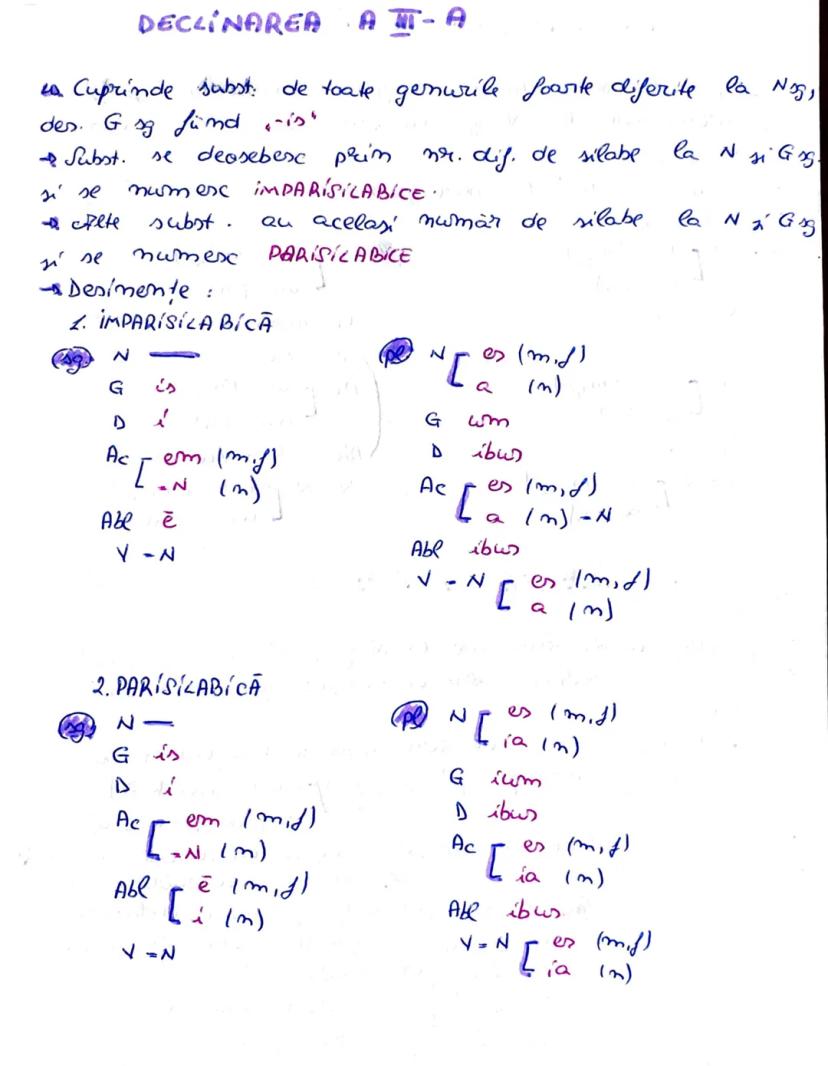 DECLINAREA A III-A
Cuprinde subst. de toate genurile foarte diferite la N sg,
des. G sg fiind „-is"
→ Subst. se deosebesc prin nr. dif. de silabe la N și G sg.
și se numesc IMPARISILABICE.
→ Alte subst. au același număr de silabe la N și G sg
și se numesc PARISILABICE
→ Desinențe :
1. IMPARISILABICĂ
sg. N — pl N [ es (m,f)
a (n)
G is G um
D i D ibus
Ac [ em (m,f) Ac [ es (m,f)
=N (n) a (n) - N
Abl ē Abl ibus
V - N V - N [ es (m,f)
a (n)
2. PARISILABICĂ
sg. N — pl N [ es (m,f)
ia (n)
G is G ium
D i D ibus
Ac [ em (m,f) Ac [ es (m,f)
=N (n) ia (n)
Abl [ ē (m,f) Abl ibus
i (n)
V = N V = N [ es (m,f)
ia (n)